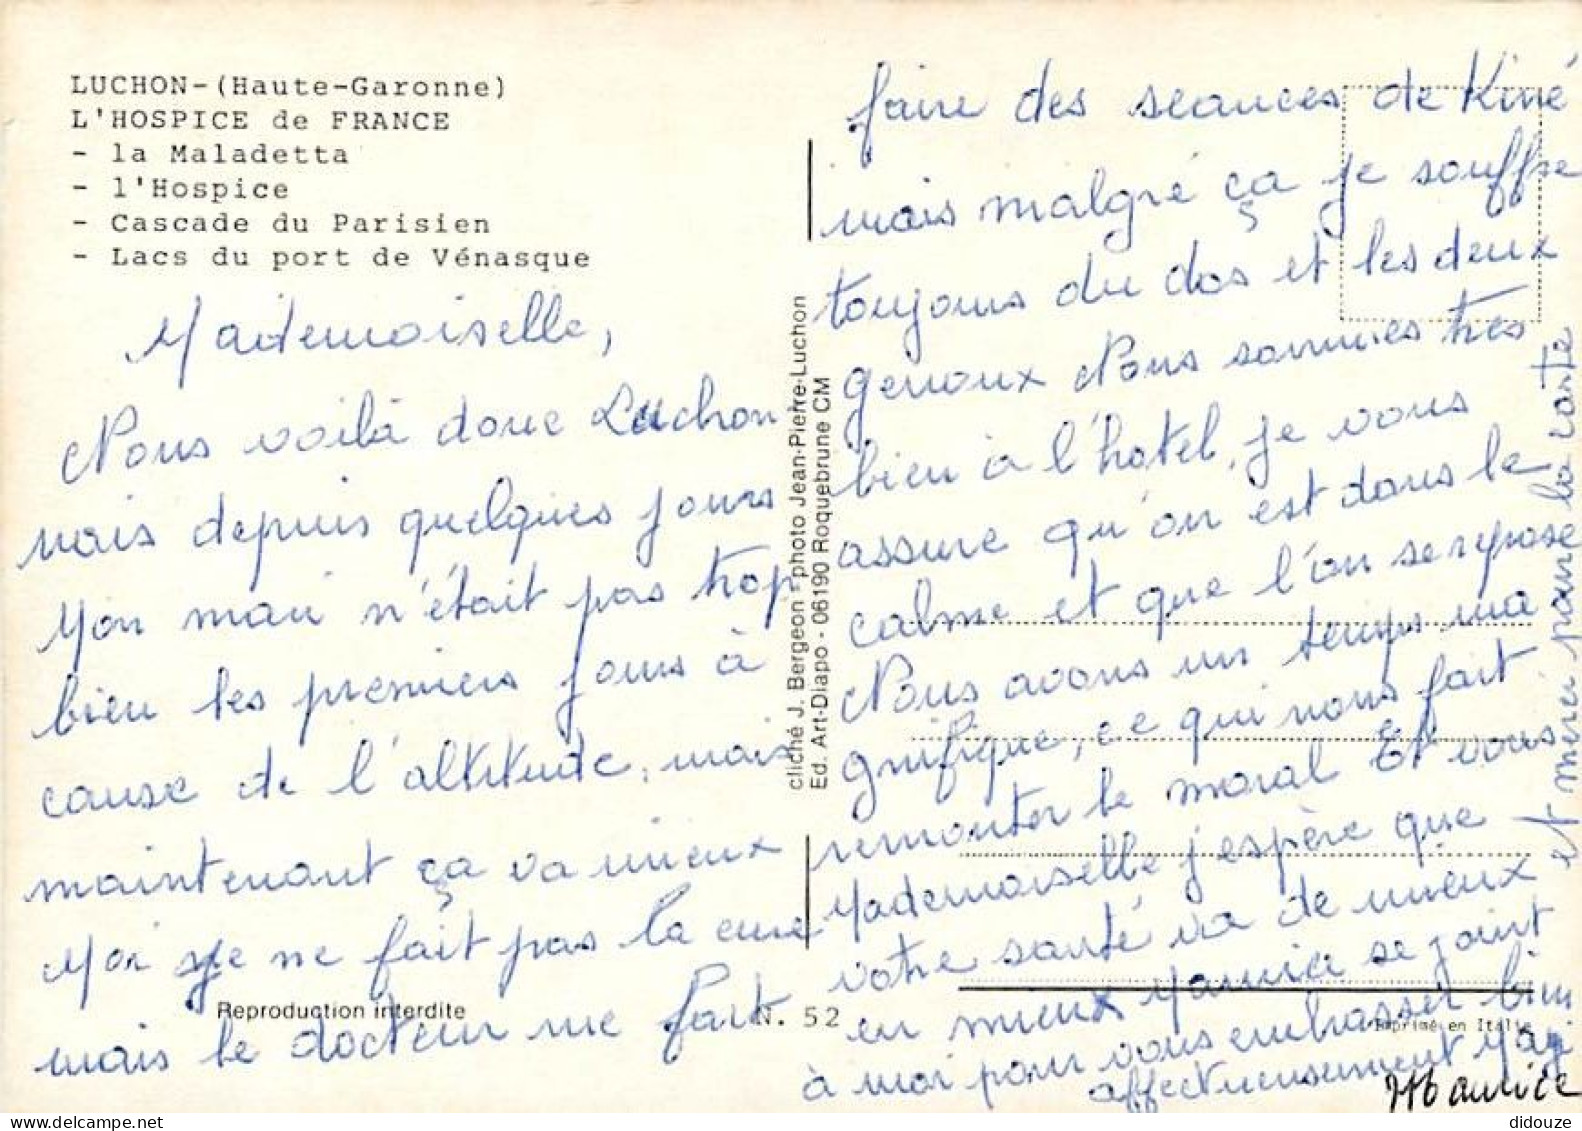 LUCHON-(Haute-Garonne)
L'HOSPICE de FRANCE
- la Maladetta
- l'Hospice
- Cascade du Parisien
- Lacs du port de Vénasque
Mademoiselle,
Nous voilà donc Luchon
mais depuis quelques jours
Mon mari n'était pas trop
bien les premiers jours à
cause de l'altitude, mais
maintenant ça va mieux
Moi je ne fait pas la cure
mais le docteur me fait
Reproduction interdite
N. 52
cliché J. Bergeon - photo Jean-Pierre-Luchon
Ed. Art-Diapo - 06190 Roquebrune CM
faire des seances de Kiné
mais malgré ça je souffre
toujours du dos et les deux
genoux Nous sommes très
bien à l'hotel, je vous
assure qu'on est dans le
calme et que l'on se repose
Nous avons un temps ma
gnifique, ce qui nous fait
remonter le moral Et vous
Mademoiselle j'espère que
votre santé va de mieux
en mieux Maurice se joint
à moi pour vous embrasser bien
affectueusement
Maurice
Imprimé en Italie
et merci pour la carte
didouze